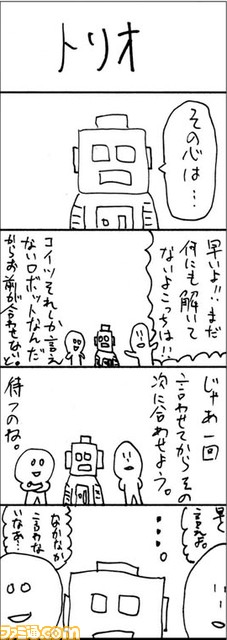 トリオ
その心は…
早いよ!!まだ
何にも解いて
ないよこっちは!!
コイツそれしか言え
ないロボットなんだ
からお前が合わせないと。
じゃあ一回
言わせてからその
次に合わせよう。
待つのね。
早く
言えよ。
・・・。
なかなか
言わな
いなあ…
ファミ通.com